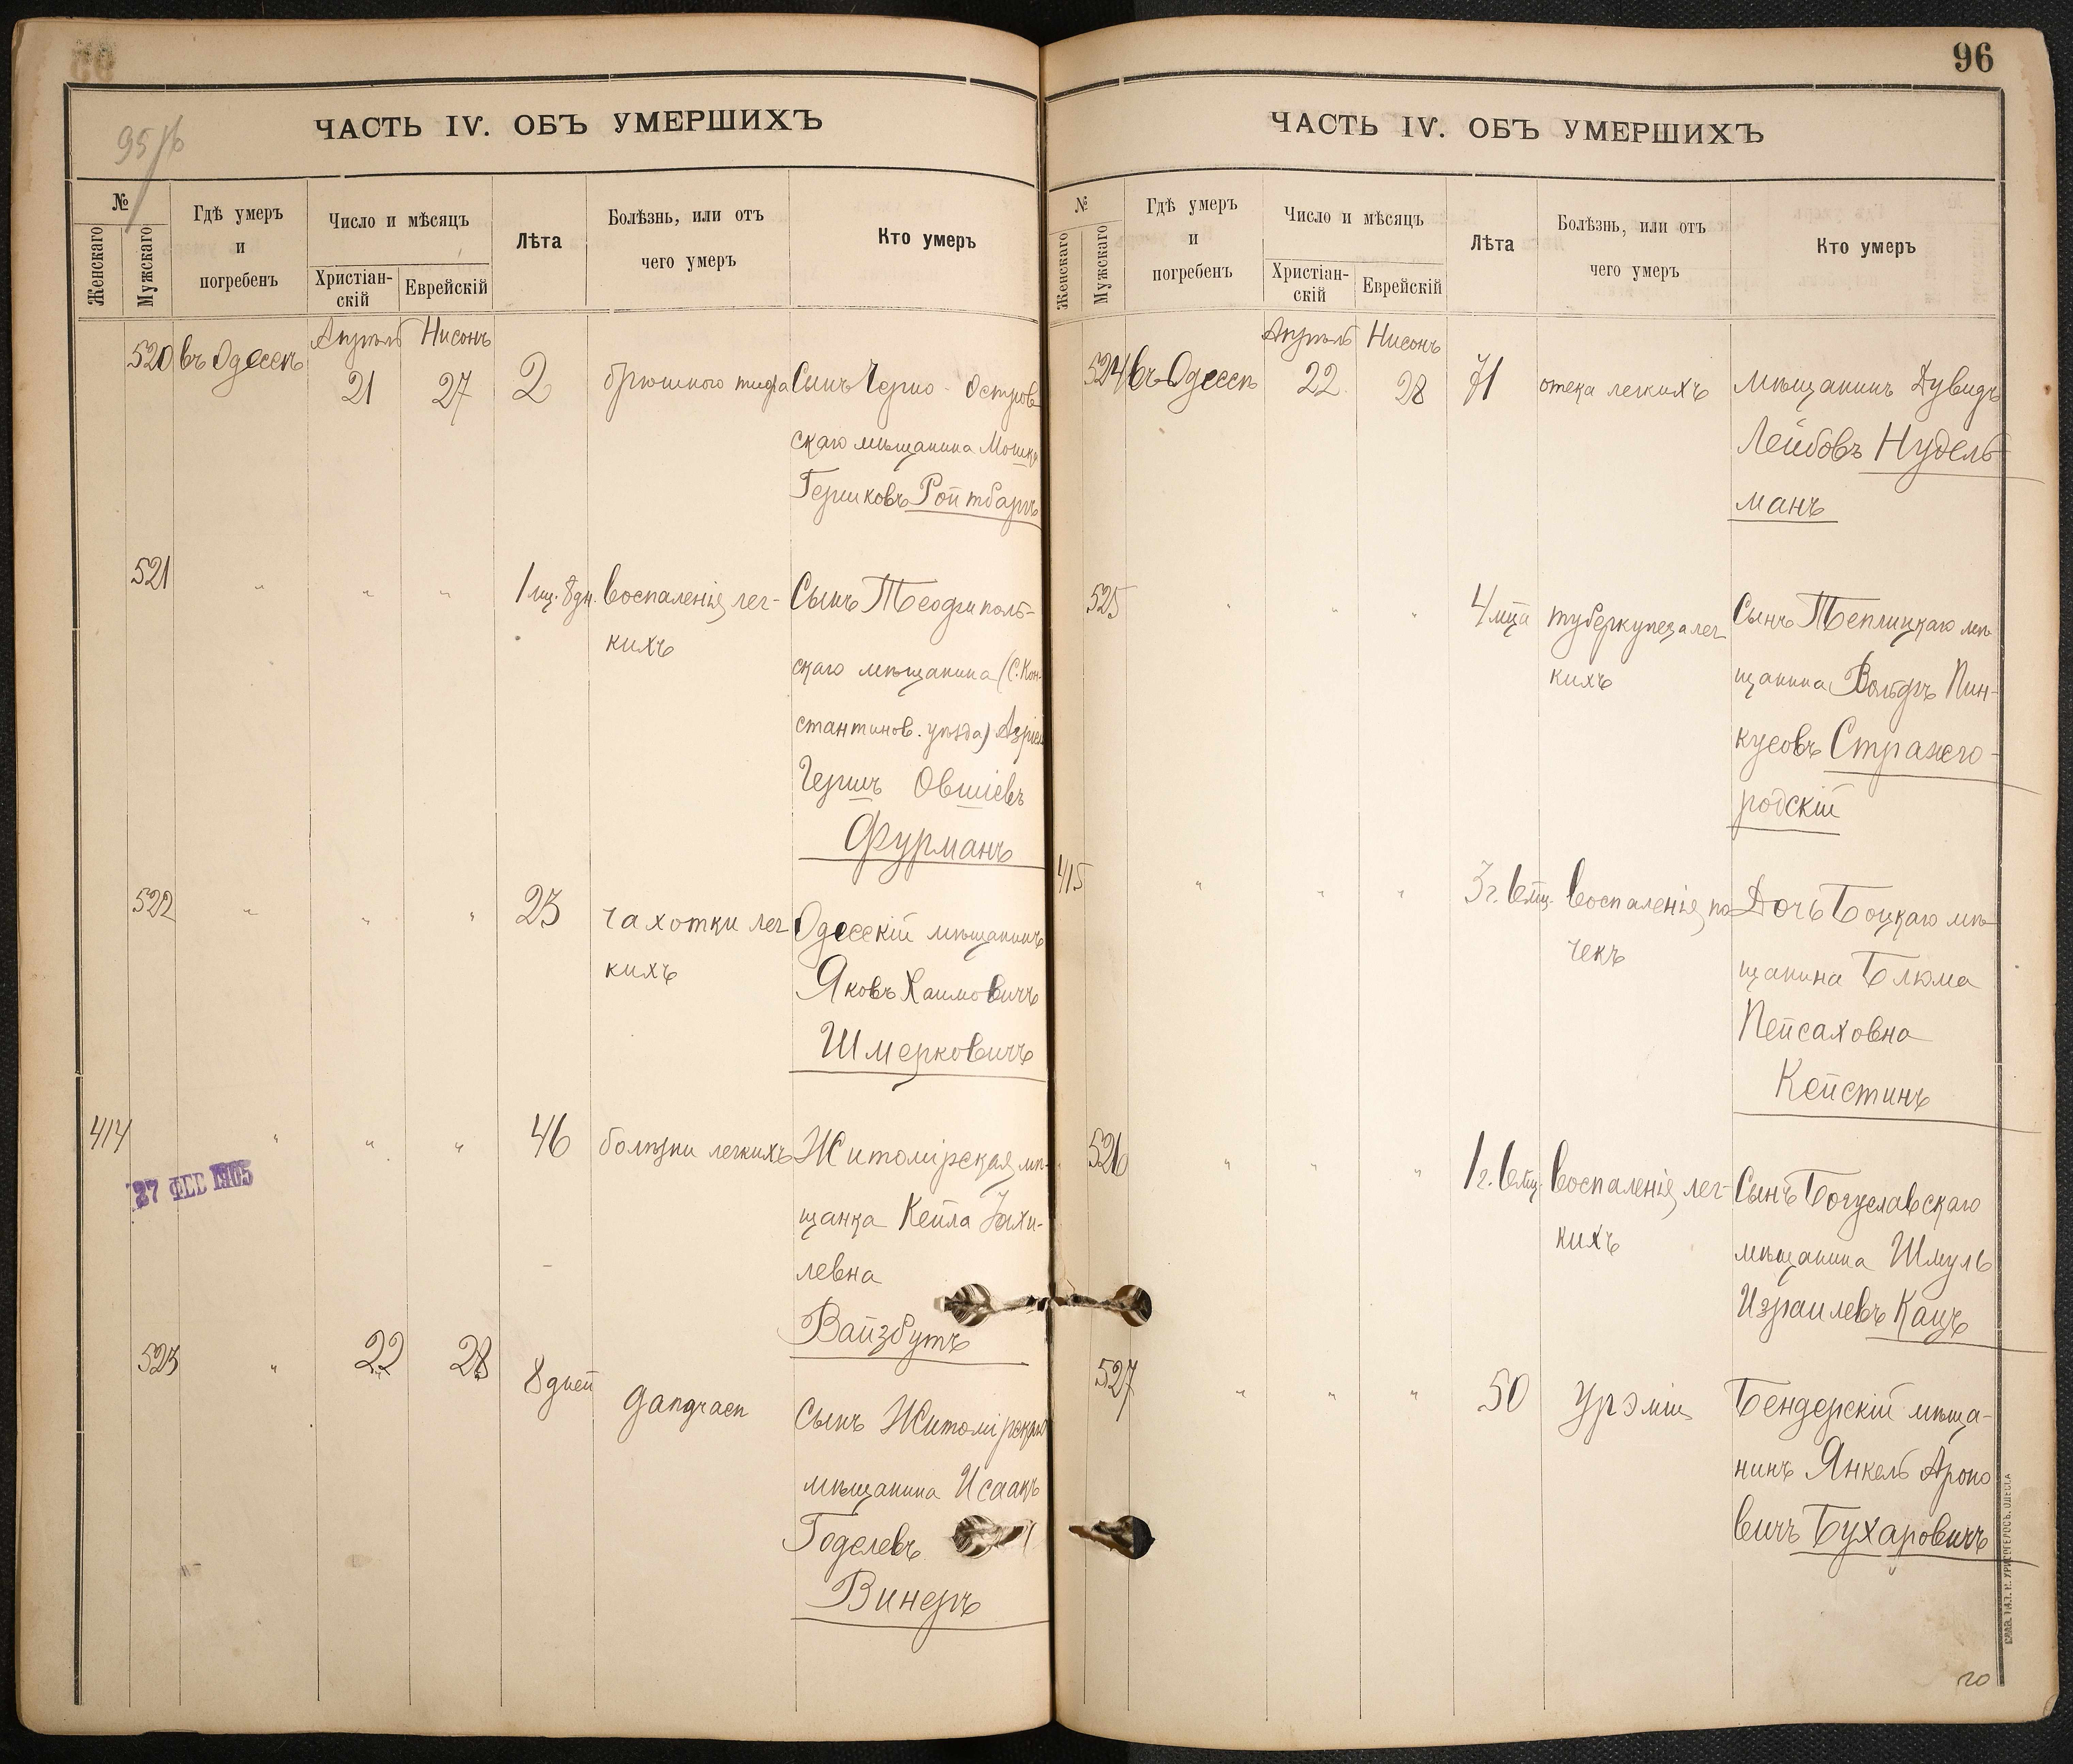 95 / 96
ЧАСТЬ IV. ОБЪ УМЕРШИХЪ
№
Женскаго
Мужскаго
Гдѣ умеръ
и
погребенъ
Число и мѣсяцъ
Христіан-
скій
Еврейскій
Лѣта
Болѣзнь, или отъ
чего умеръ
Кто умеръ
Апрѣль Нисонъ
520 въ Одессѣ 21 27 2 брюшного тифа Сынъ Черно-Остров
скаго мѣщанина Мошко
Гершковъ Ройтбаргъ
521 " " " 1 мц. 8 дн. воспаленія лег- Сынъ Теофиполь-
кихъ
скаго мѣщанина (С. Кон-
стантинов. уѣзда) Азріел
Гершъ Овшіевъ
Фурманъ
522 " " " 23 чахотки лег Одесскій мѣщанинъ
кихъ
Яковъ Хаимовичъ
Шмерковичъ
414 " " " 46 болѣзни легкихъ Житомірская мѣ-
27 ФЕВ 1905
щанка Кейла
левна
Вайзбутъ
523 " 22 28 8 дней gangraen Сынъ Житомірскаго
мѣщанина Исаакъ
Годелевъ
Винеръ
96
ЧАСТЬ IV. ОБЪ УМЕРШИХЪ
№
Женскаго
Мужскаго
Гдѣ умеръ
и
погребенъ
Число и мѣсяцъ
Христіан-
скій
Еврейскій
Лѣта
Болѣзнь, или отъ
чего умеръ
Кто умеръ
Апрѣль Нисонъ
524 въ Одессѣ 22 28 71 отека легкихъ мѣщанинъ Дувидъ
Лейбовъ Нудель
манъ
525 " " " 4 мца туберкулеза лег Сынъ Теплицкаго мѣ
кихъ
щанина Вольфъ Пин-
кусовъ Стражго-
родскій
415 " " " 3 г. 6 мц. воспаленія по Дочь Боцкаго мѣ
чекъ
щанина Блюма
Пейсаховна
Кейстинъ
526 " " " 1 г. 6 мц. воспаленія лег- Сынъ Богуславскаго
кихъ
мѣщанина Шмуль
Израилевъ Кацъ
527 " " " 50 Урэміи Бендерскій мѣща-
нинъ Янкель Ароно
вичъ Бухаровичъ